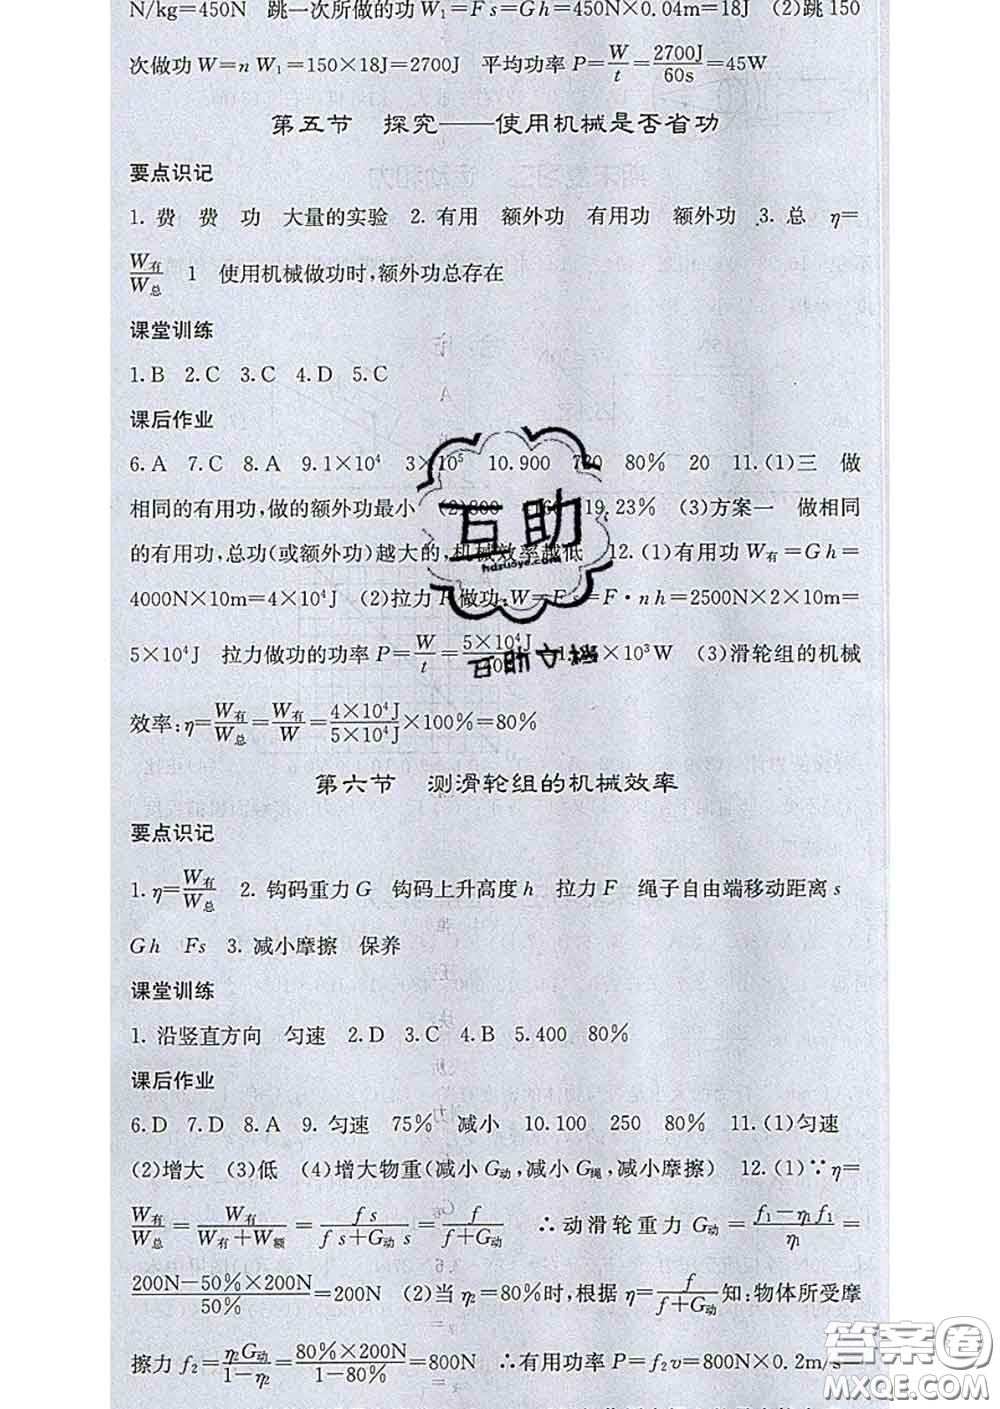 N/kg=450N 跳一次所做的功W₁=Fs=Gh=450N×0.04m=18J (2)跳150
次做功W=nW₁=150×18J=2700J 平均功率P=W/t=2700J/60s=45W
第五节 探究——使用机械是否省功
要点识记
1. 费 费 功 大量的实验 2. 有用 额外功 有用功 额外功 3. 总 η=
W有/W总 1 使用机械做功时,额外功总存在
课堂训练
1.B 2.C 3.C 4.D 5.C
课后作业
6.A 7.C 8.A 9.1×10⁴ 3×10⁵ 10.900 720 80% 20 11.(1)三 做
相同的有用功,做的额外功最小 (2)600 19.23% (3)方案一 做相同
的有用功,总功(或额外功)越大的,机械效率越低 12.(1)有用功W有=Gh=
4000N×10m=4×10⁴J (2)拉力F做功:W=Fs=F·nh=2500N×2×10m=
5×10⁴J 拉力做功的功率P=W/t=5×10⁴J ×10³W (3)滑轮组的机械
效率:η=W有/W总=W有/W=4×10⁴J/5×10⁴J×100%=80%
第六节 测滑轮组的机械效率
要点识记
1. η=W有/W总 2. 钩码重力G 钩码上升高度h 拉力F 绳子自由端移动距离s
Gh Fs 3. 减小摩擦 保养
课堂训练
1. 沿竖直方向 匀速 2.D 3.C 4.B 5.400 80%
课后作业
6.D 7.D 8.A 9. 匀速 75% 减小 10.100 250 80% 11.(1)匀速
(2)增大 (3)低 (4)增大物重(减小G动,减小G绳,减小摩擦) 12.(1)∵η=
W有/W总=W有/W有+W额=fs/fs+G动s=f/f+G动 ∴动滑轮重力G动=f₁-η₁f₁/η₁=
200N-50%×200N/50%=200N (2)当η₂=80%时,根据η=f/f+G动知:物体所受摩
擦力f₂=η₂G动/1-η₂=80%×200N/1-80%=800N ∴有用功率P=f₂v=800N×0.2m/s=
互助
hdzuoye.com
互助文档
答案圈
MXQE.COM